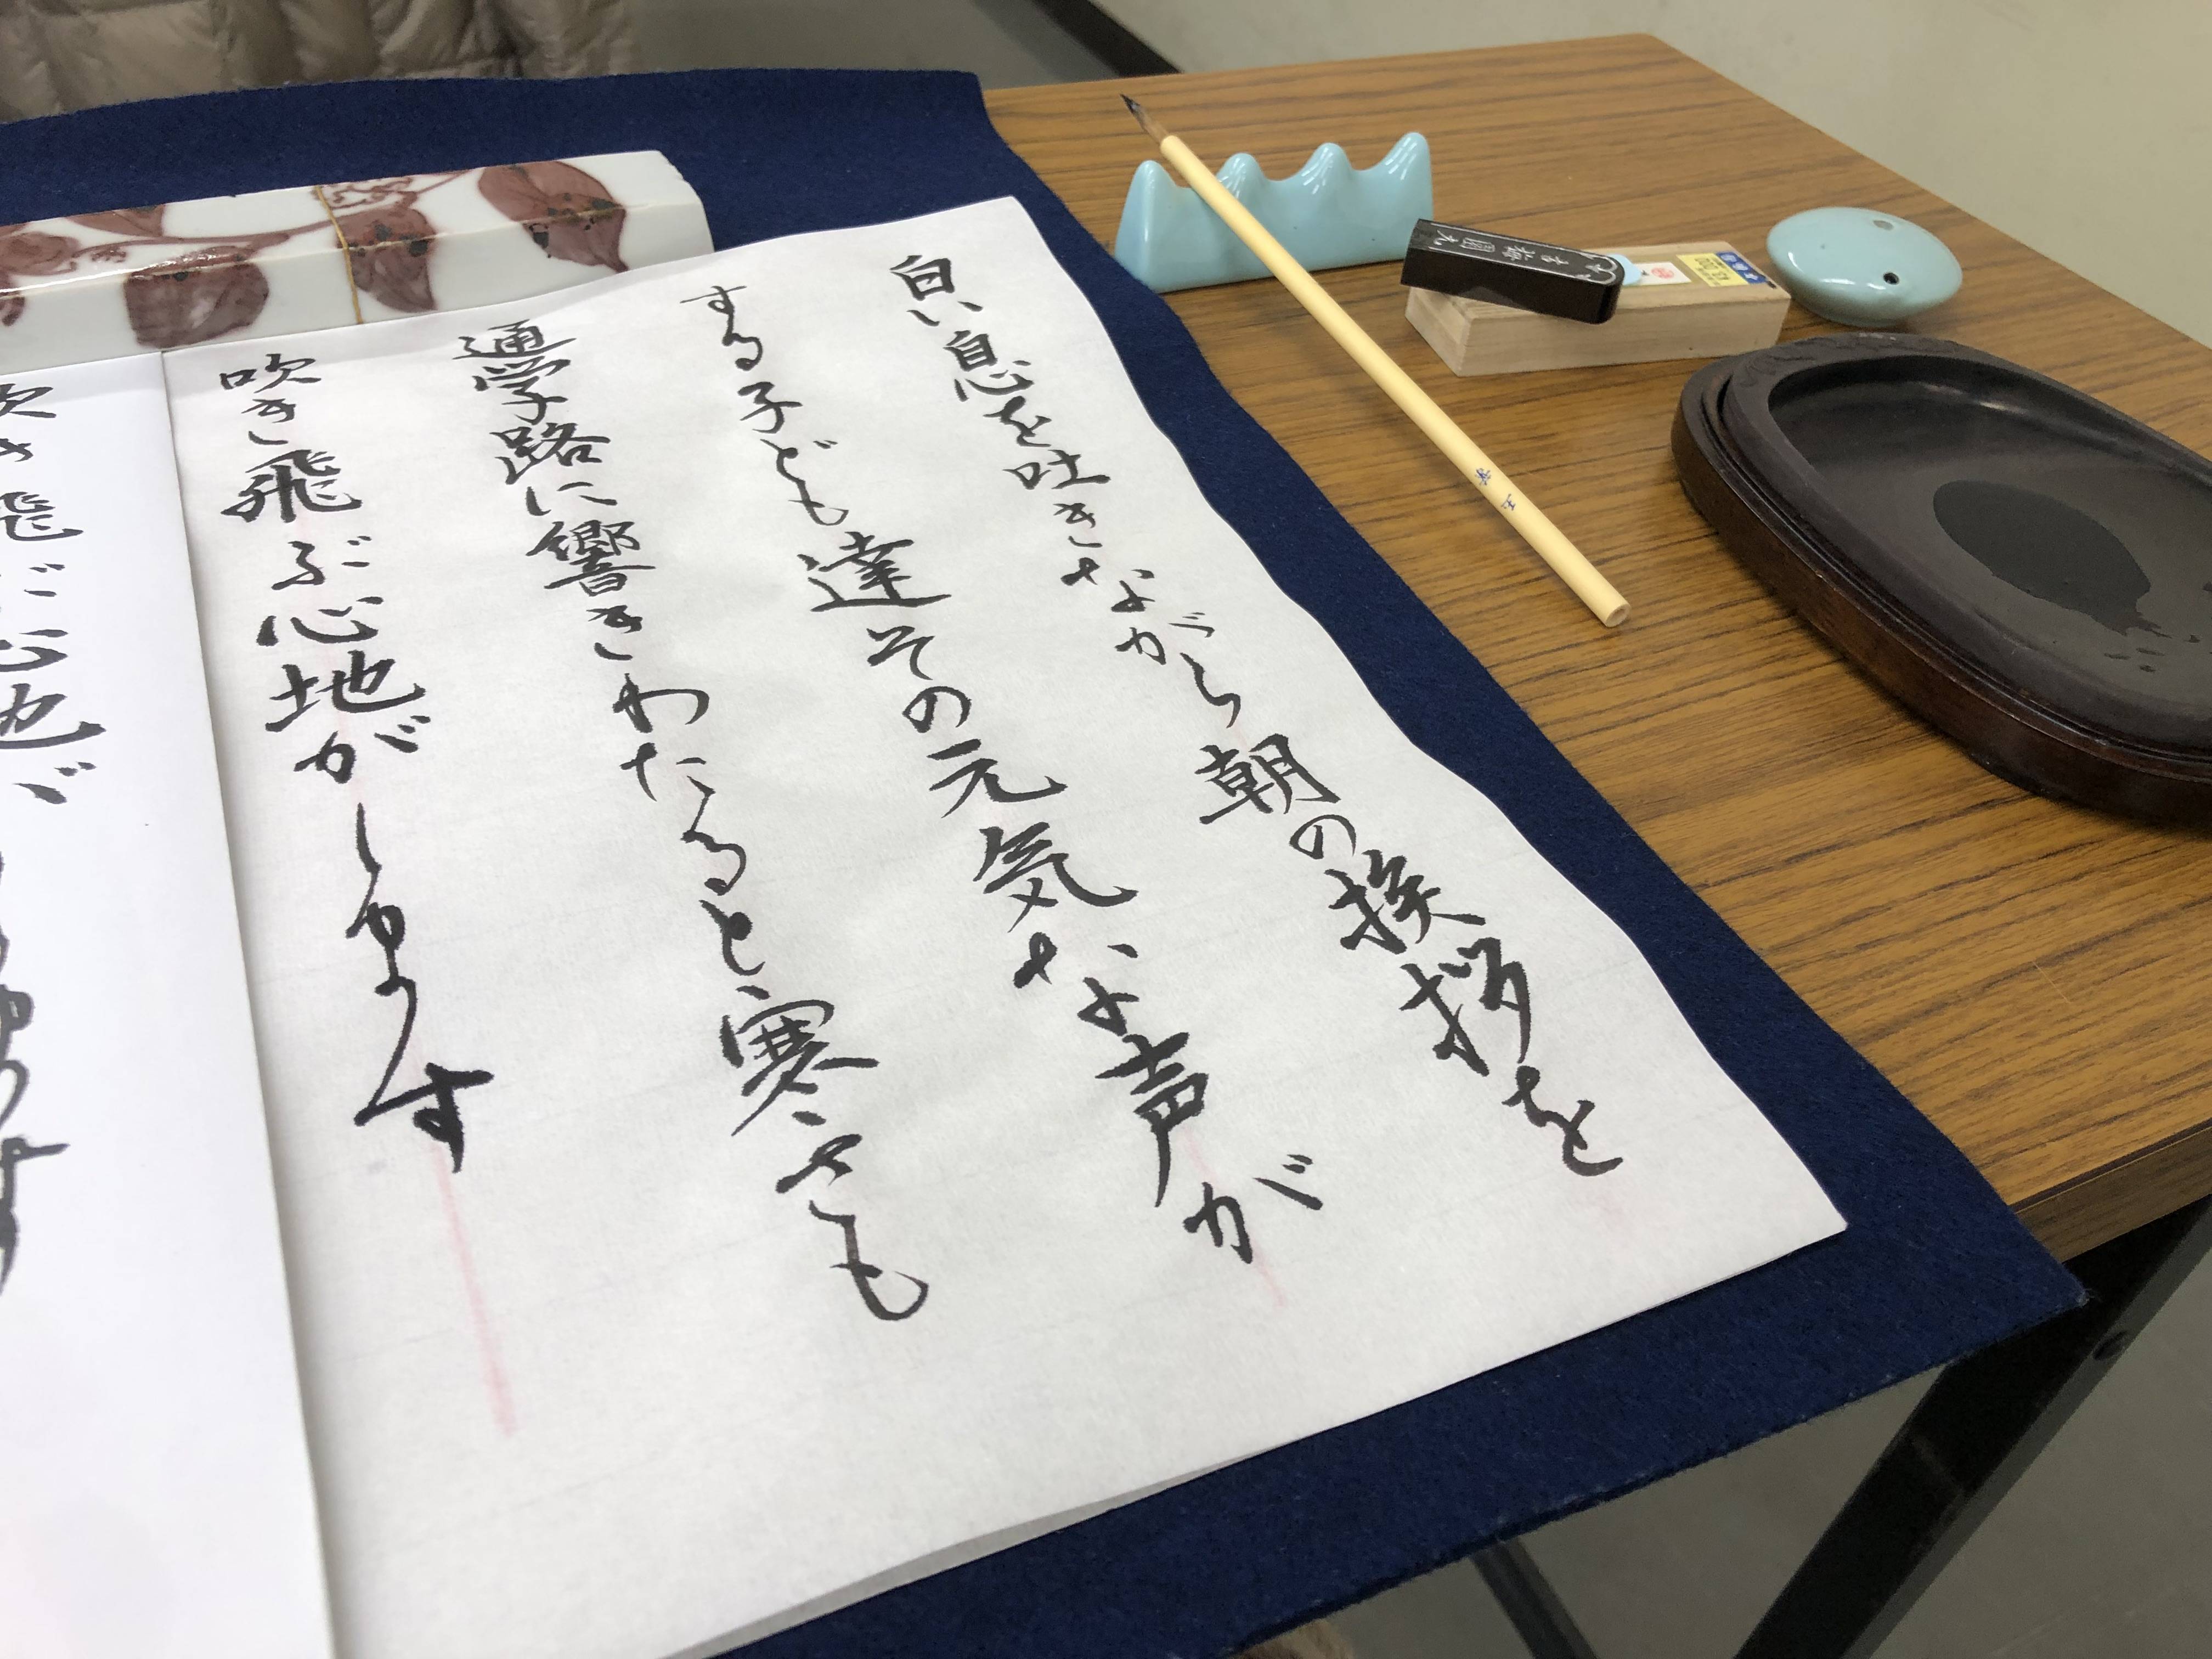 白い息を吐きながら朝の挨拶を
する子ども達その元気な声が
通学路に響きわたると寒さも
吹き飛ぶ心地がします
吹き飛ぶ心地が